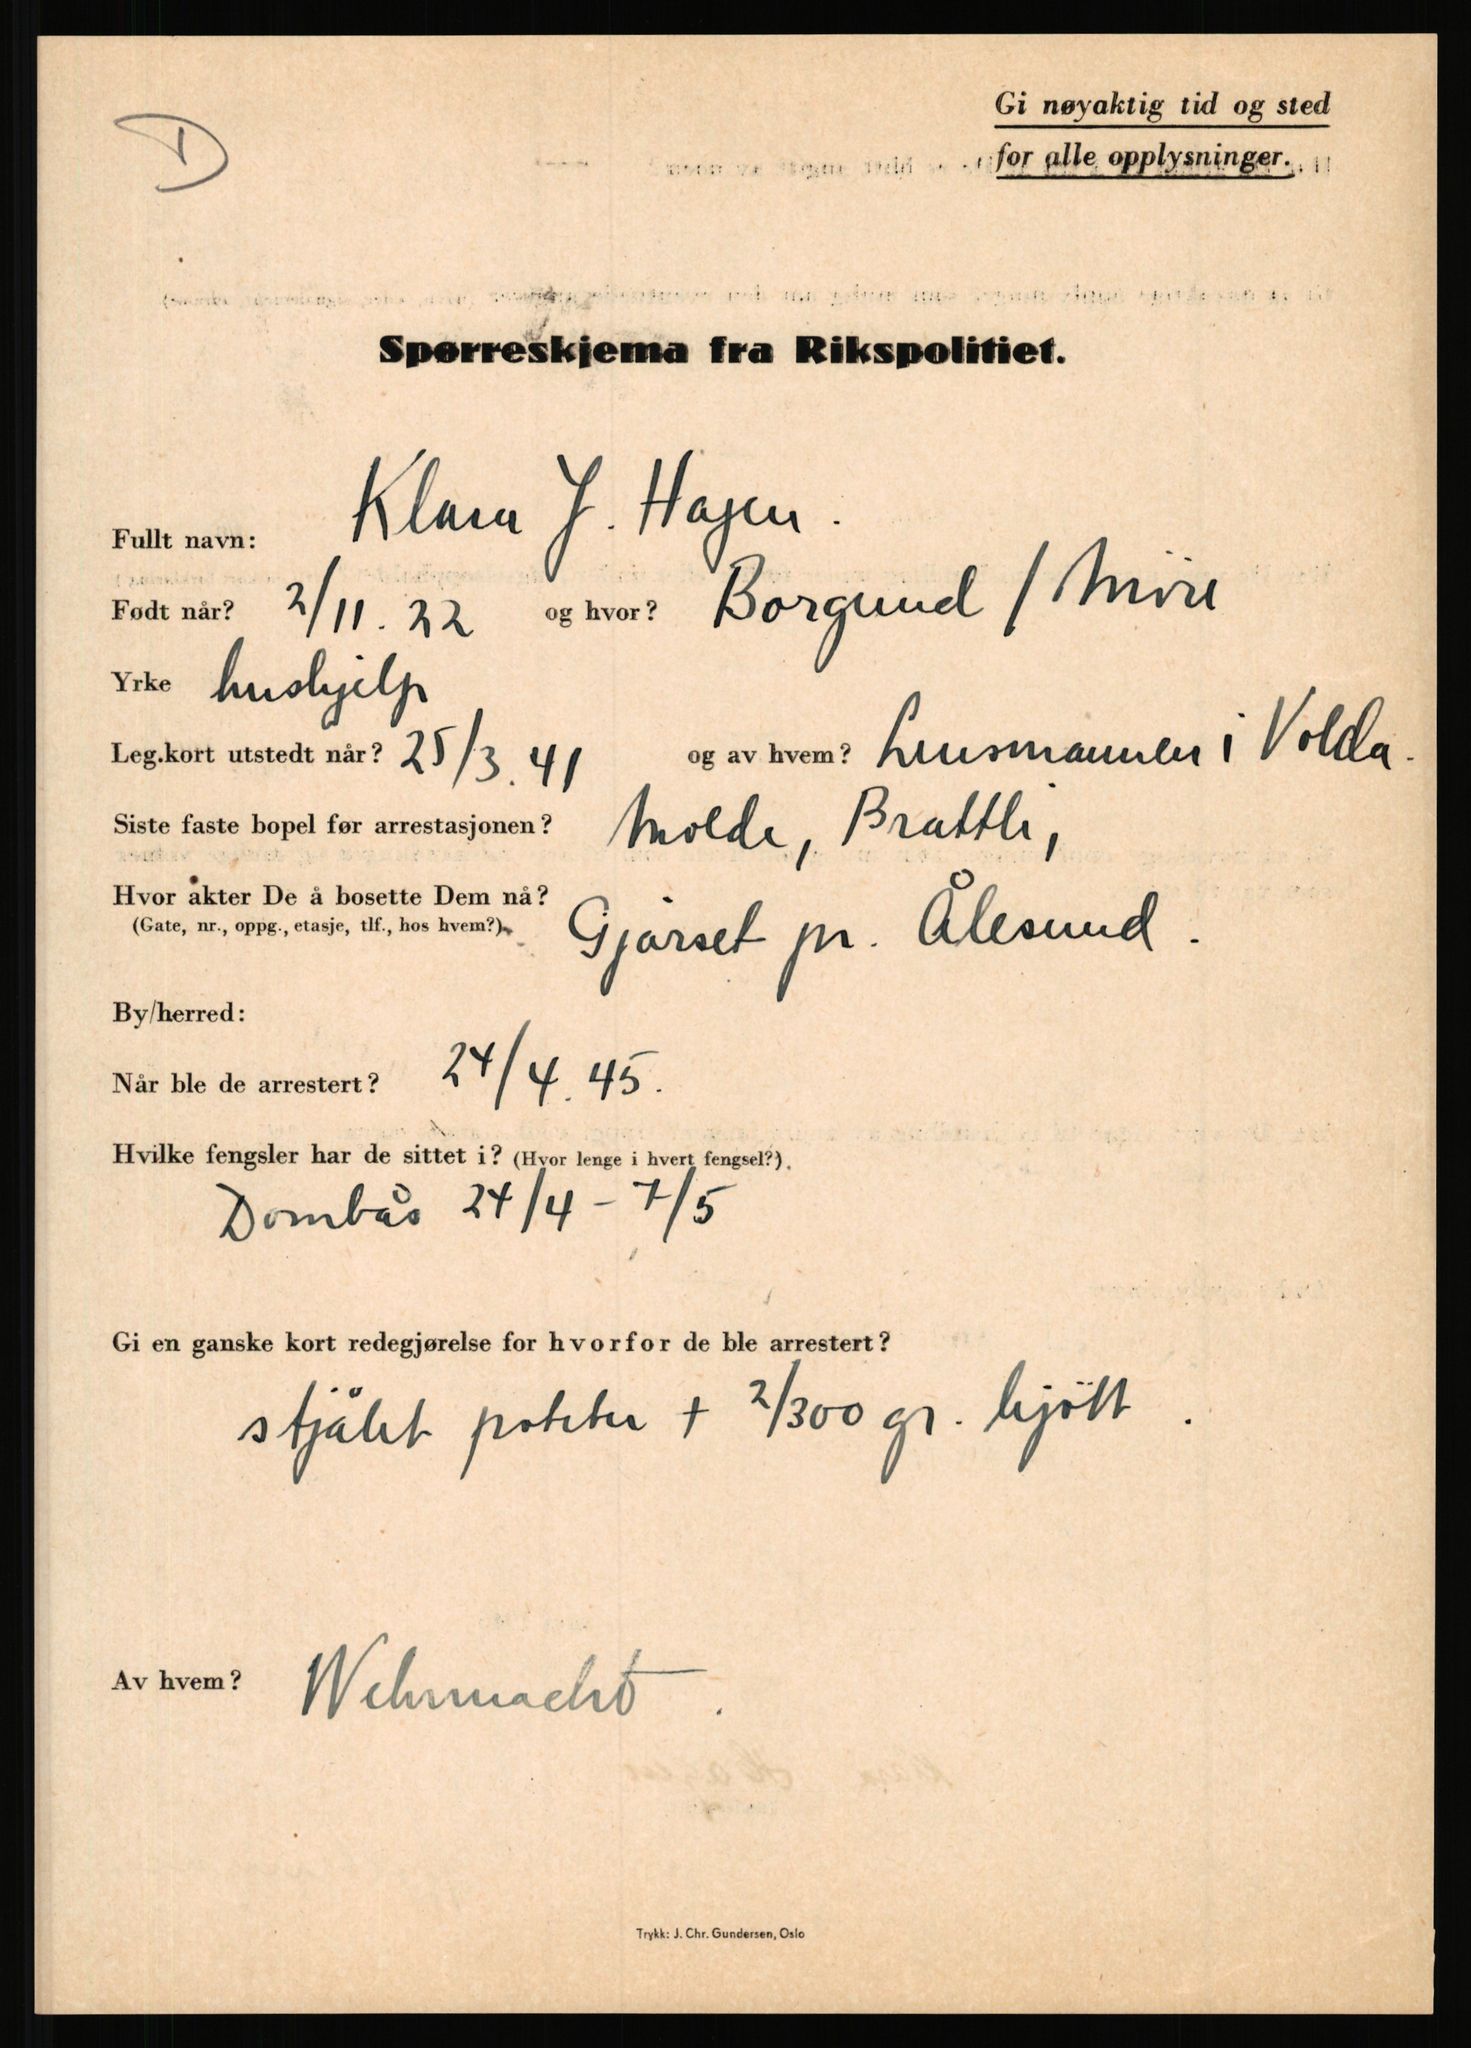 D
Gi nøyaktig tid og sted
for alle opplysninger.
Spørreskjema fra Rikspolitiet.
Fullt navn: Klara J. Hagen.
Født når? 2/11. 22 og hvor? Borgund / Möre
Yrke hushjelp
Leg.kort utstedt når? 25/3. 41 og av hvem? Lensmannen i Volda.
Siste faste bopel før arrestasjonen? Molde, Brattli,
Hvor akter De å bosette Dem nå? Gjørset pr. Ålesund.
(Gate, nr., oppg., etasje, tlf., hos hvem?)
By/herred:
Når ble de arrestert? 24/4. 45.
Hvilke fengsler har de sittet i? (Hvor lenge i hvert fengsel?).
Dombås 24/4 – 7/5
Gi en ganske kort redegjørelse for hvorfor de ble arrestert?
stjålet poteter + 2/300 gr. kjött.
Av hvem? Wehrmacht.
Trykk: J. Chr. Gundersen, Oslo